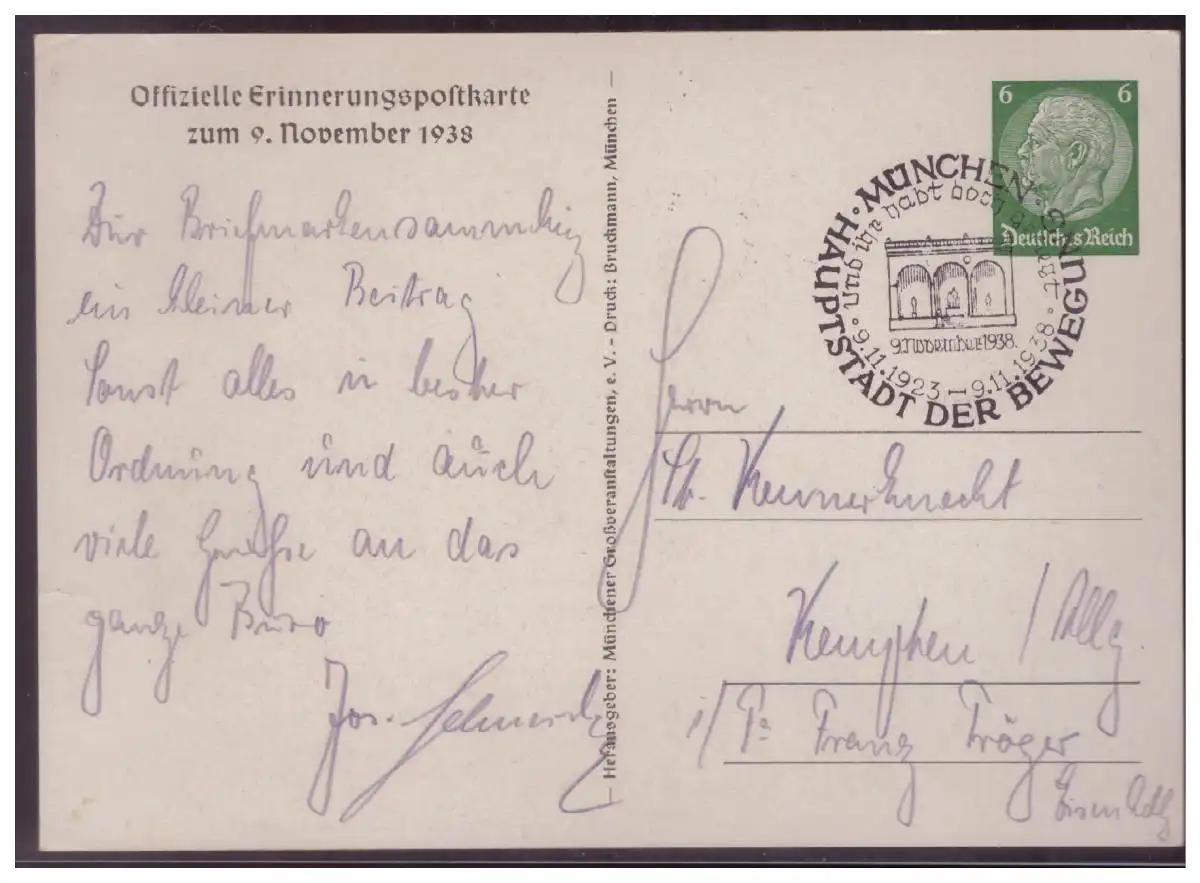 Offizielle Erinnerungspostkarte
zum 9. November 1938
Zur Briefmarkensammlung
ein kleiner Beitrag
Sonst alles in bester
Ordnung und auch
viele Grüße an das
ganze Büro
Jos.
— Herausgeber: Münchener Großveranstaltungen, e. V. - Druck: Bruckmann, München —
6 6
Deutsches Reich
MÜNCHEN · HAUPTSTADT DER BEWEGUNG ·
· Und ihr habt doch gesiegt ·
9. November 1938.
9.11.1923 — 9.11.1938
Herrn
Kempten / Allg.
Fa Franz Tröger
Eisenhdlg